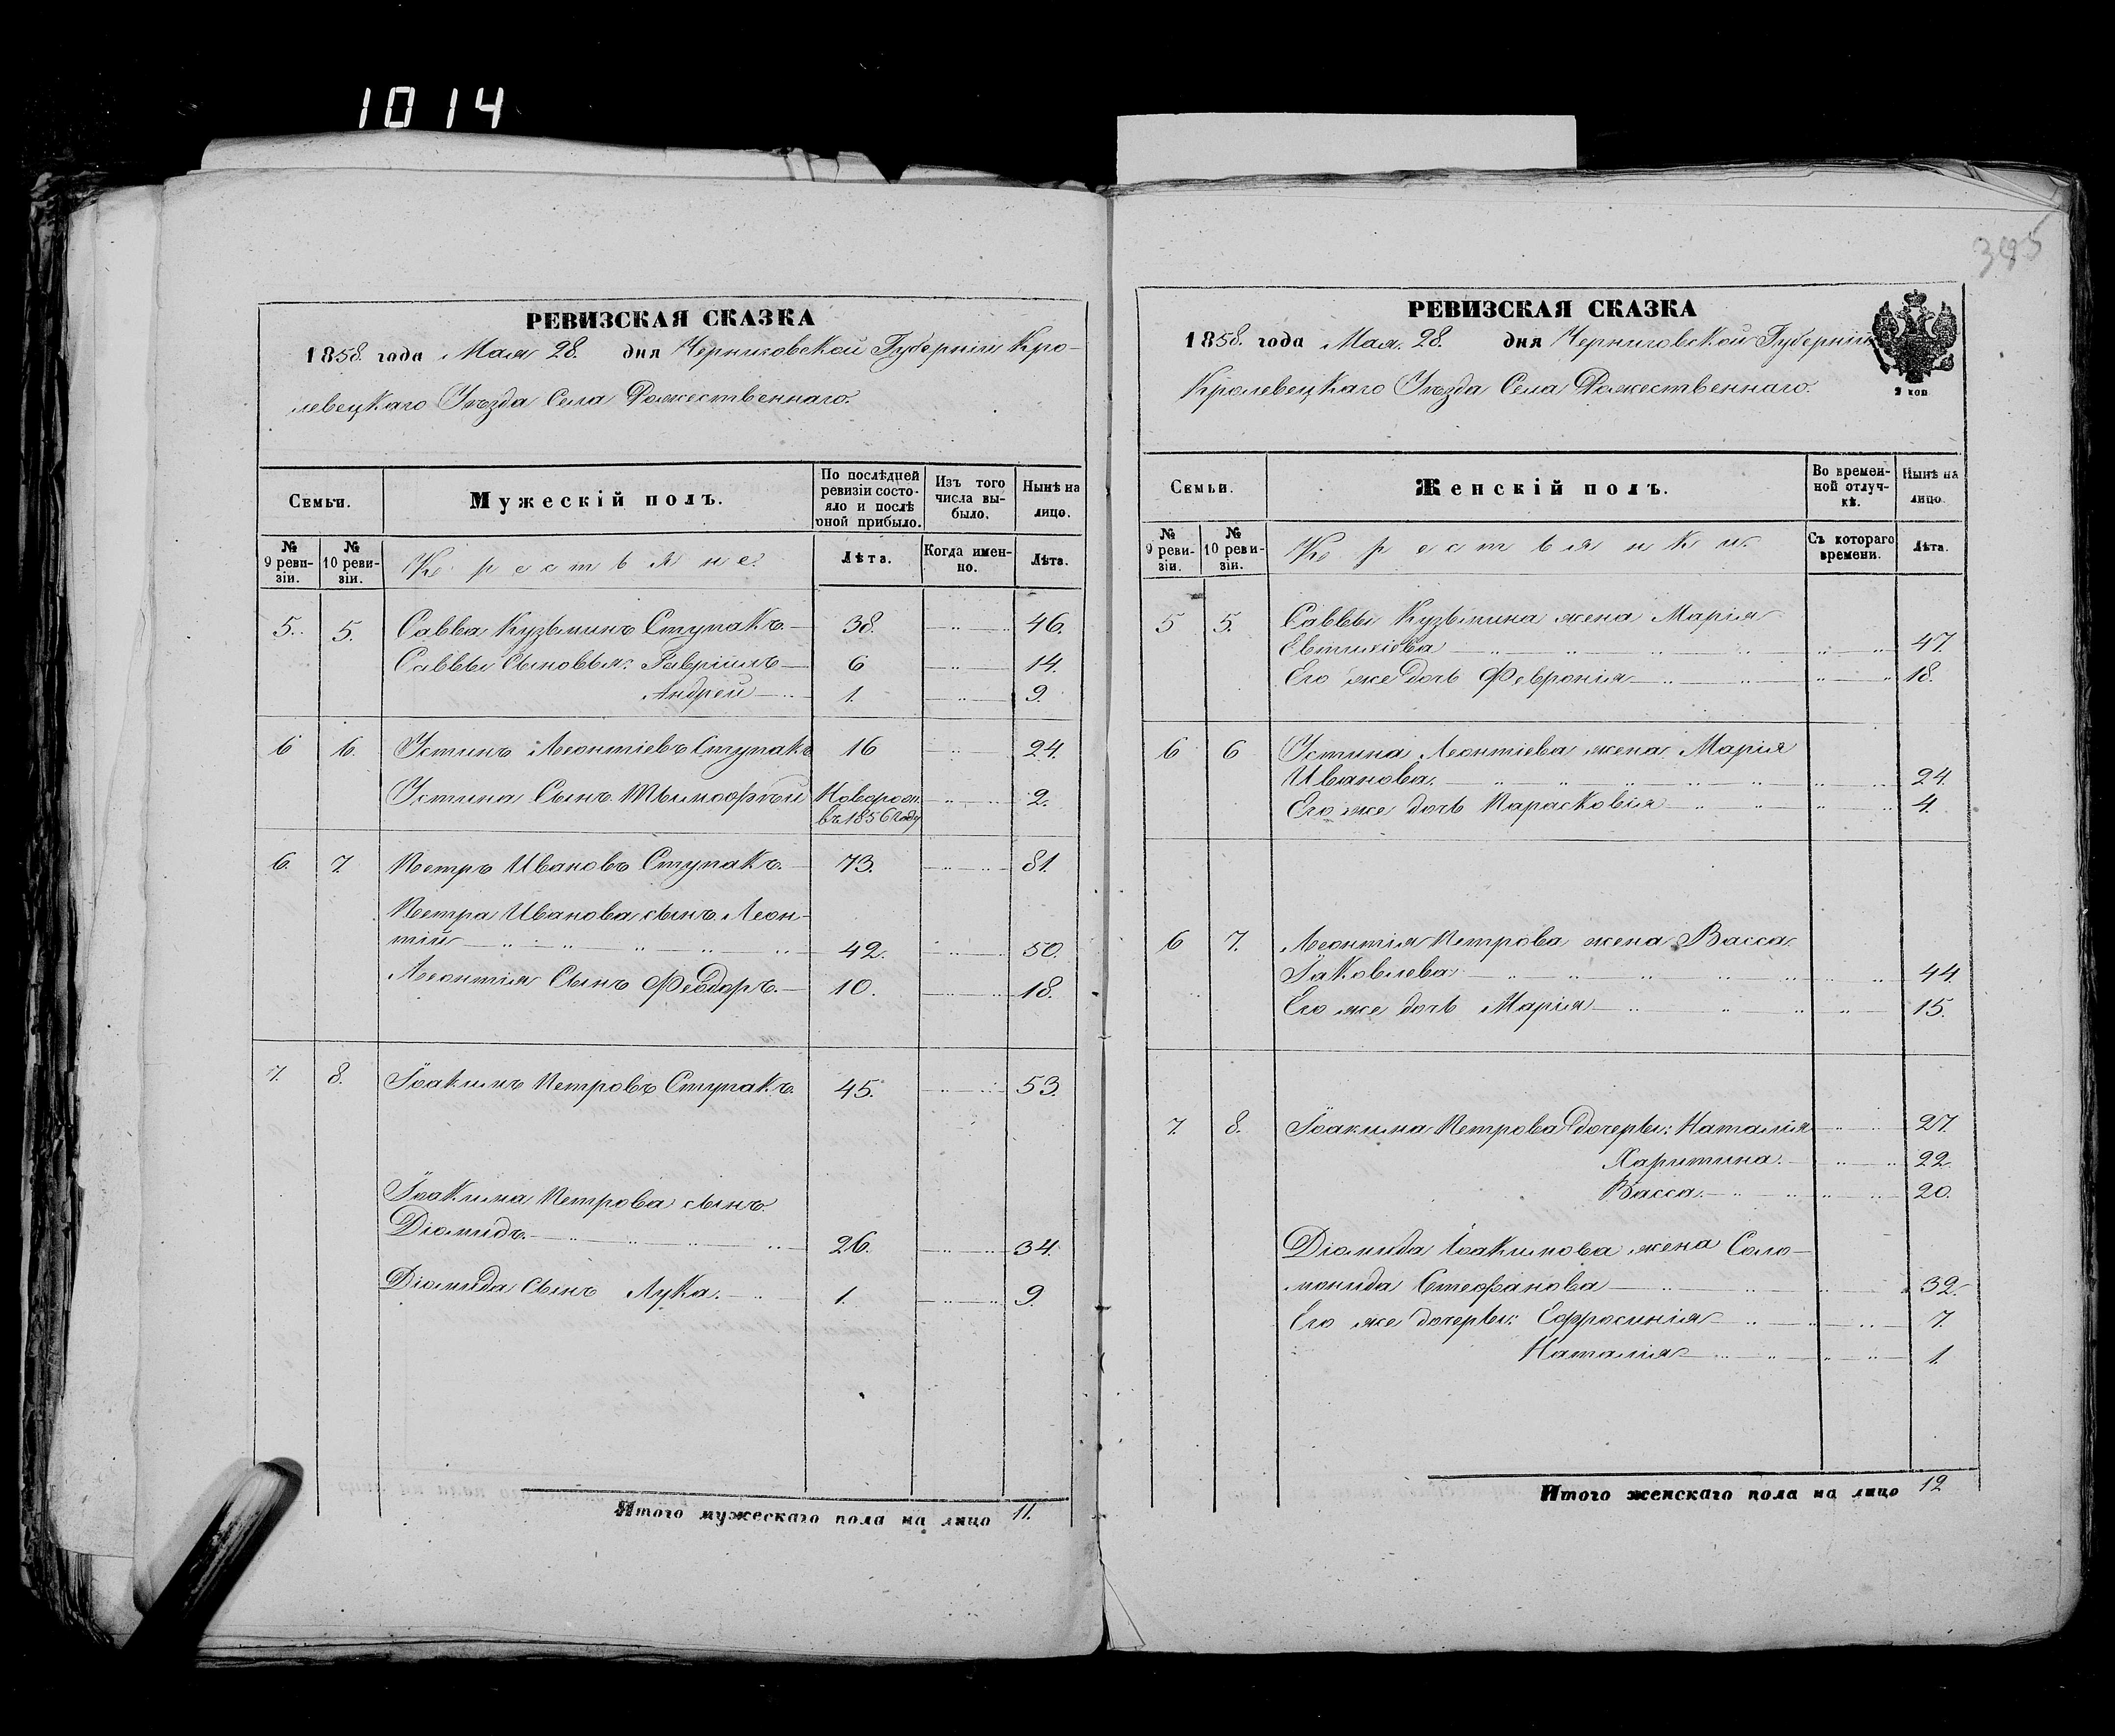 1014
395
РЕВИЗСКАЯ СКАЗКА
1858. года Мая 28. дня Черниговской Губерніи Кро-
левецкаго Уѣзда Села Рожественнаго.
Семьи.
Мужескій полъ.
По послѣдней ревизіи состо-яло и послѣ оной прибыло.
Изъ того числа вы-было.
Нынѣ на лицо.
№ 9 реви-зіи.
№ 10 реви-зіи.
Крестьяне.
Лѣта.
Когда имен-но.
Лѣта.
5. 5. Савва Кузьминъ Ступакъ 38. 46.
Саввы Сыновья: Гавріилъ 6 14.
Андрей 1. 9.
6 6. Устинъ Леонтіевъ Ступакъ 16 24.
Устина Сынъ ТимофѣйНоворож. 2.
въ 1856 году
6. 7. Петръ Ивановъ Ступакъ. 73. 81.
Петра Иванова сынъ Леон-
тій 42. 50.
Леонтія Сынъ Феодоръ. 10. 18.
7. 8. Іоакимъ Петровъ Ступакъ. 45. 53.
Іоакима Петрова сынъ
Діомидъ. 26. 34.
Діомида Сынъ Лука. 1. 9.
Итого мужескаго пола на лицо 11.
РЕВИЗСКАЯ СКАЗКА
1858. года Мая. 28. дня Черниговской Губерніи
Кролевецкаго Уѣзда Села Рожественнаго.
2 коп
Семьи.
Женскій полъ.
Во времен-ной отлуч-кѣ.
Нынѣ на лицо.
№ 9 реви-зіи.
№ 10 реви-зіи.
Крестьянки.
Съ котораго времени.
Лѣта.
5 5. Саввы Кузьмина жена Марія
47.
Его же дочь Февронія 18.
6 6 Устина Леонтіева жена Марія
Иванова. 24.
Его же дочь Парасковія 4.
6 7. Леонтія Петрова жена Васса
Іаковлева 44.
Его же дочь Марія 15.
7. 8. Іоакима Петрова дочеры: Наталія 27.
Харитина. 22.
Васса. 20.
Діомида Іоакимова жена Соло-
монида Стефанова 32.
Его же дочеры: Ефросинія 7.
Наталія 1.
Итого женскаго пола на лицо 12